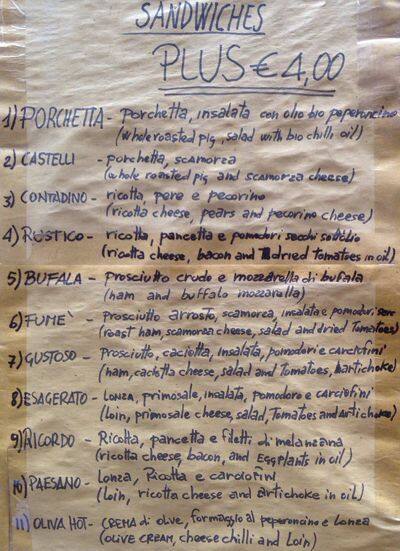 SANDWICHES
PLUS € 4,00
1) PORCHETTA - porchetta, insalata con olio bio peperoncino
(whole roasted pig, salad with bio chilli oil)
2) CASTELLI - porchetta, scamorza
(whole roasted pig and scamorza cheese)
3) CONTADINO - ricotta, pere e pecorino
(ricotta cheese, pears and pecorino cheese)
4) RUSTICO - ricotta, pancetta e pomodori secchi sottolio
(ricotta cheese, bacon and dried tomatoes in oil)
5) BUFALA - Prosciutto crudo e mozzarella di bufala
(ham and buffalo mozzarella)
6) FUME' - Prosciutto arrosto, scamorza, insalata e pomodori
(roast ham, scamorza cheese, salad and dried Tomatoes)
7) GUSTOSO - Prosciutto, caciotta, insalata, pomodori e carciofini
(ham, caciotta cheese, salad and Tomatoes, artichoke)
8) ESAGERATO - Lonza, primosale, insalata, pomodoro e carciofini
(Loin, primosale cheese, salad, Tomatoes and Artichoke)
9) RICORDO - Ricotta, pancetta e filetti di melanzana
(ricotta cheese, bacon, and Eggplants in oil)
10) PAESANO - Lonza, Ricotta e carciofini
(Loin, ricotta cheese and artichoke in oil)
11) OLIVA HOT - CREMA di olive, formaggio al peperoncino e Lonza
(OLIVE CREAM, cheese chilli and Loin)